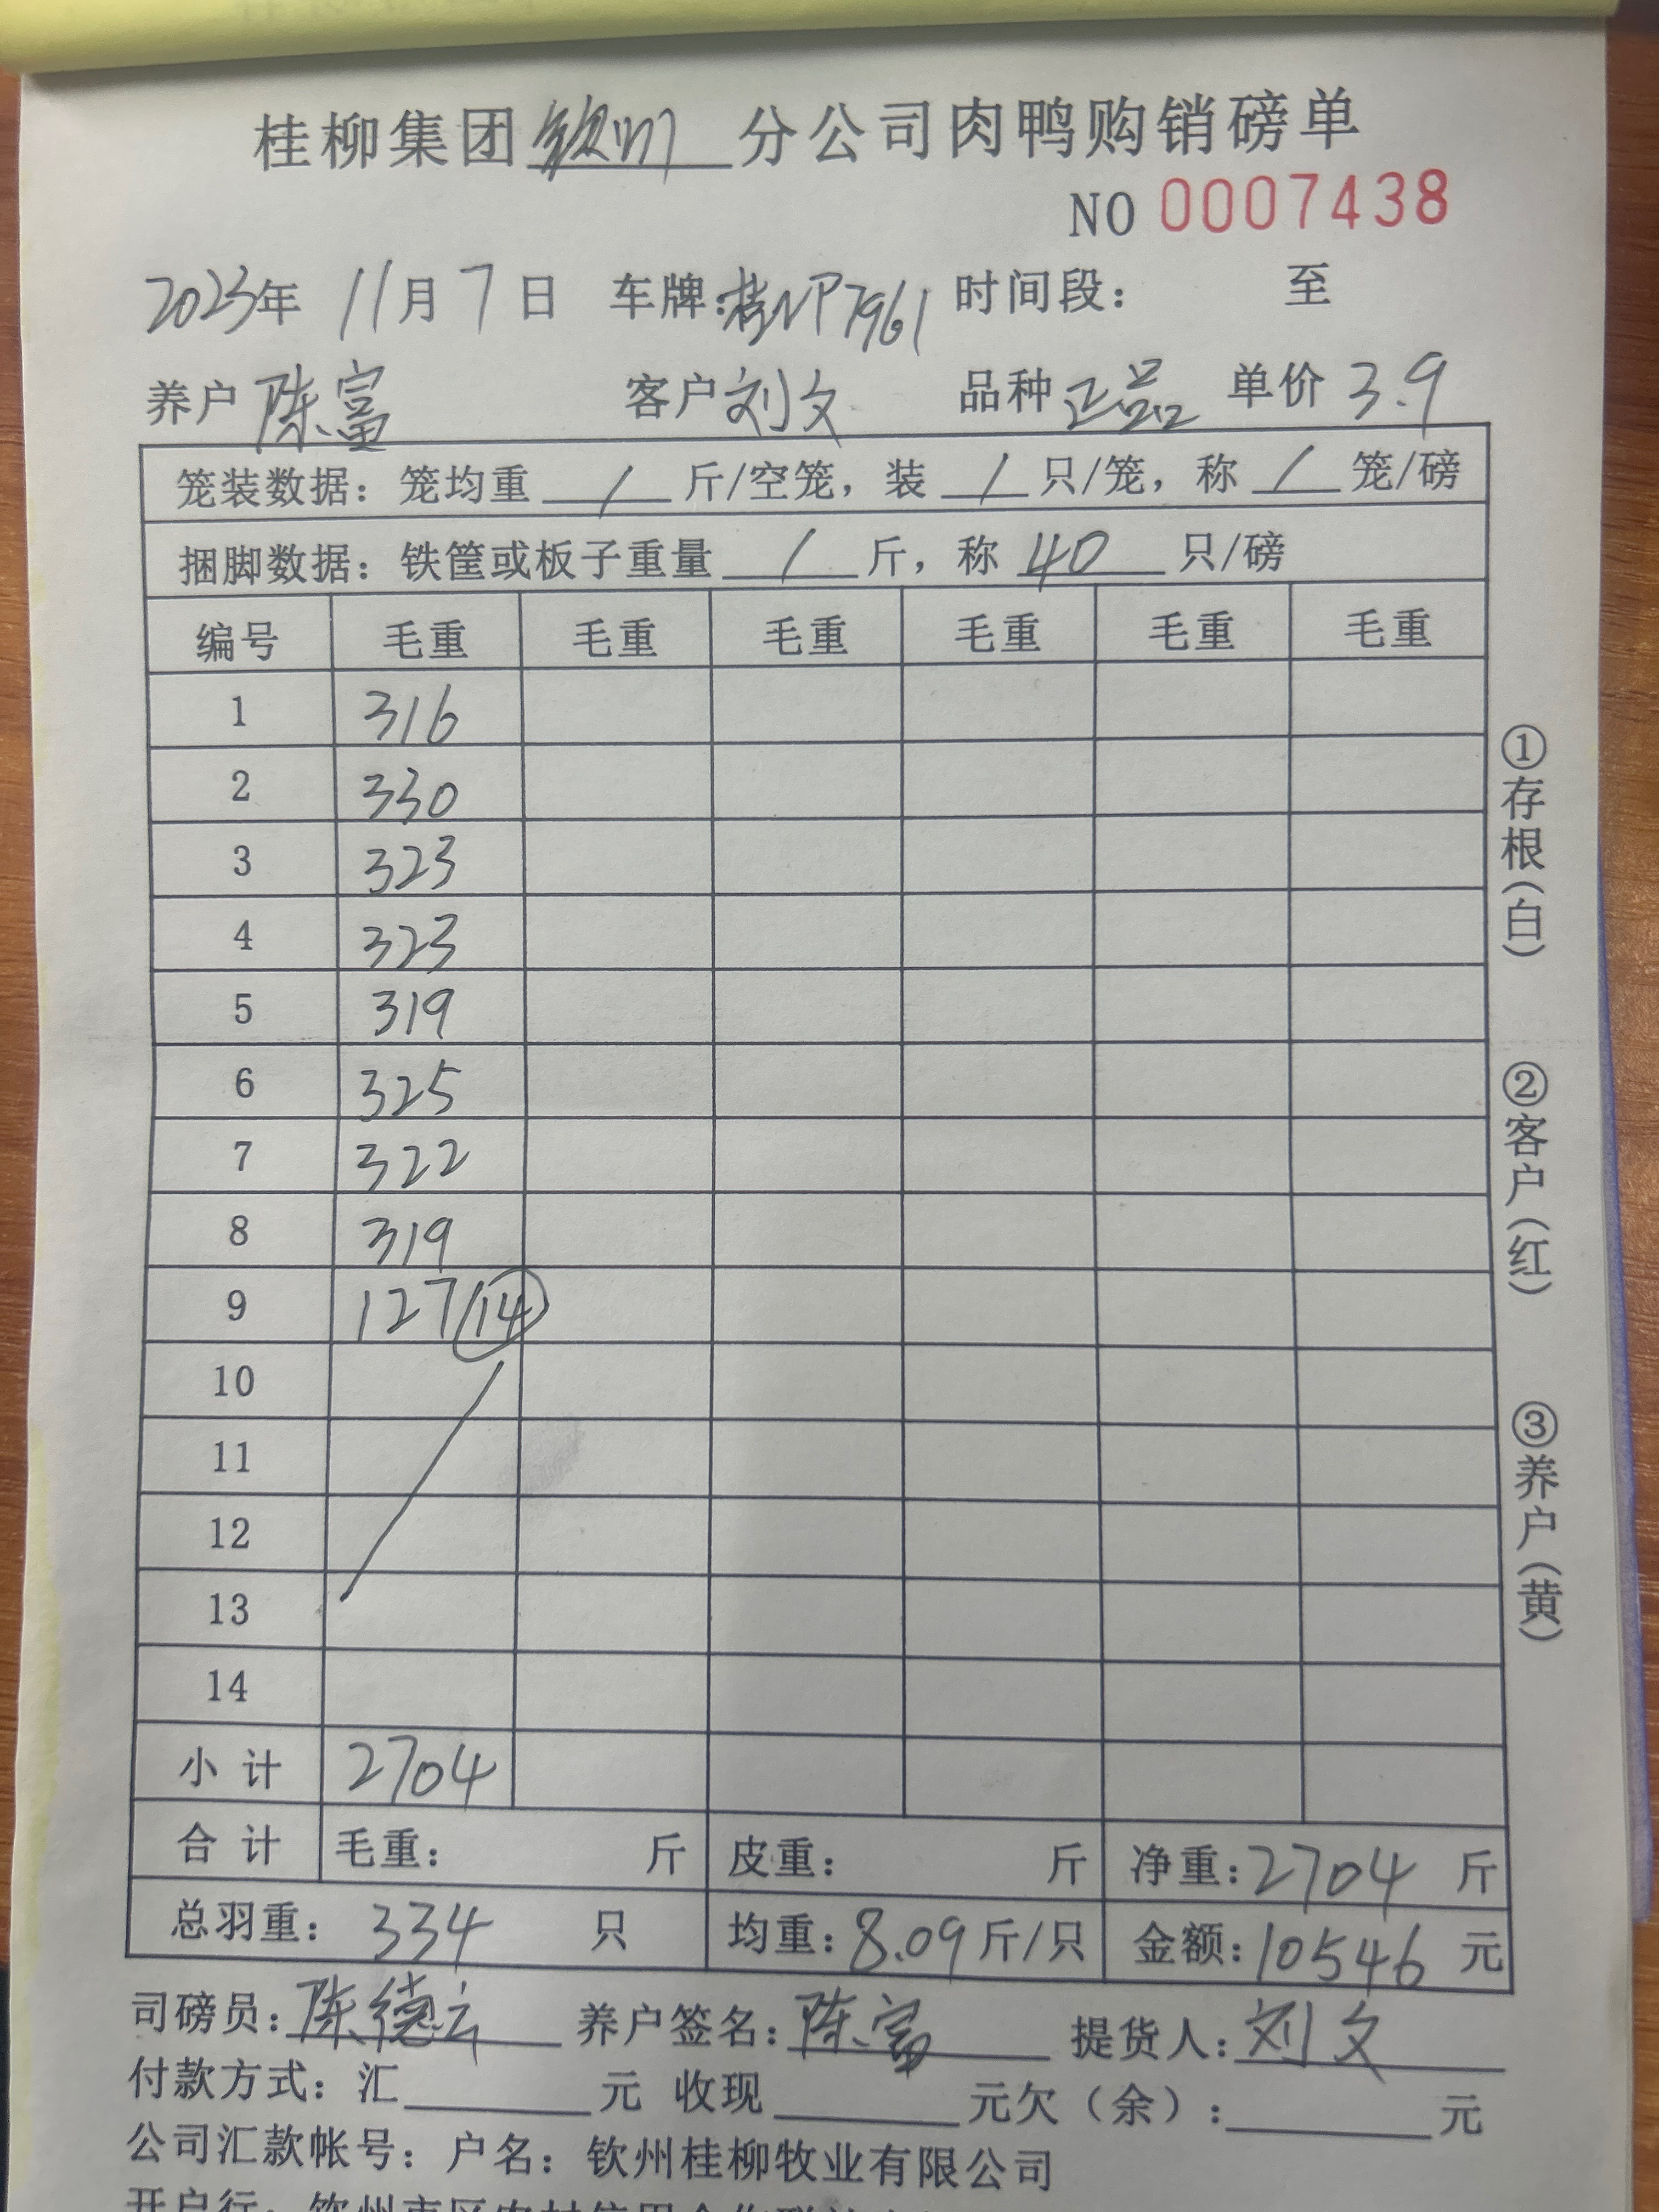 桂柳集团钦州分公司肉鸭购销磅单
NO 0007438
2023年 11月 7日 车牌:桂NP7961 时间段： 至
养户 陈富 客户 刘文 品种 正品 单价 3.9
笼装数据：笼均重 / 斤/空笼，装 / 只/笼，称 / 笼/磅
捆脚数据：铁筐或板子重量 / 斤，称 40 只/磅
编号 毛重 毛重 毛重 毛重 毛重 毛重
1 316
2 330
3 323
4 323
5 319
6 325
7 322
8 319
9 127/14
10
11
12
13
14
小计 2704
合计 毛重： 斤 皮重： 斤 净重：2704 斤
总羽重： 334 只 均重：8.09斤/只 金额：10546 元
司磅员：陈德云 养户签名：陈富 提货人：刘文
付款方式：汇 元 收现 元欠（余）： 元
公司汇款帐号：户名：钦州桂柳牧业有限公司
开户行：钦州市区农村信用合作联社
①存根（白）
②客户（红）
③养户（黄）